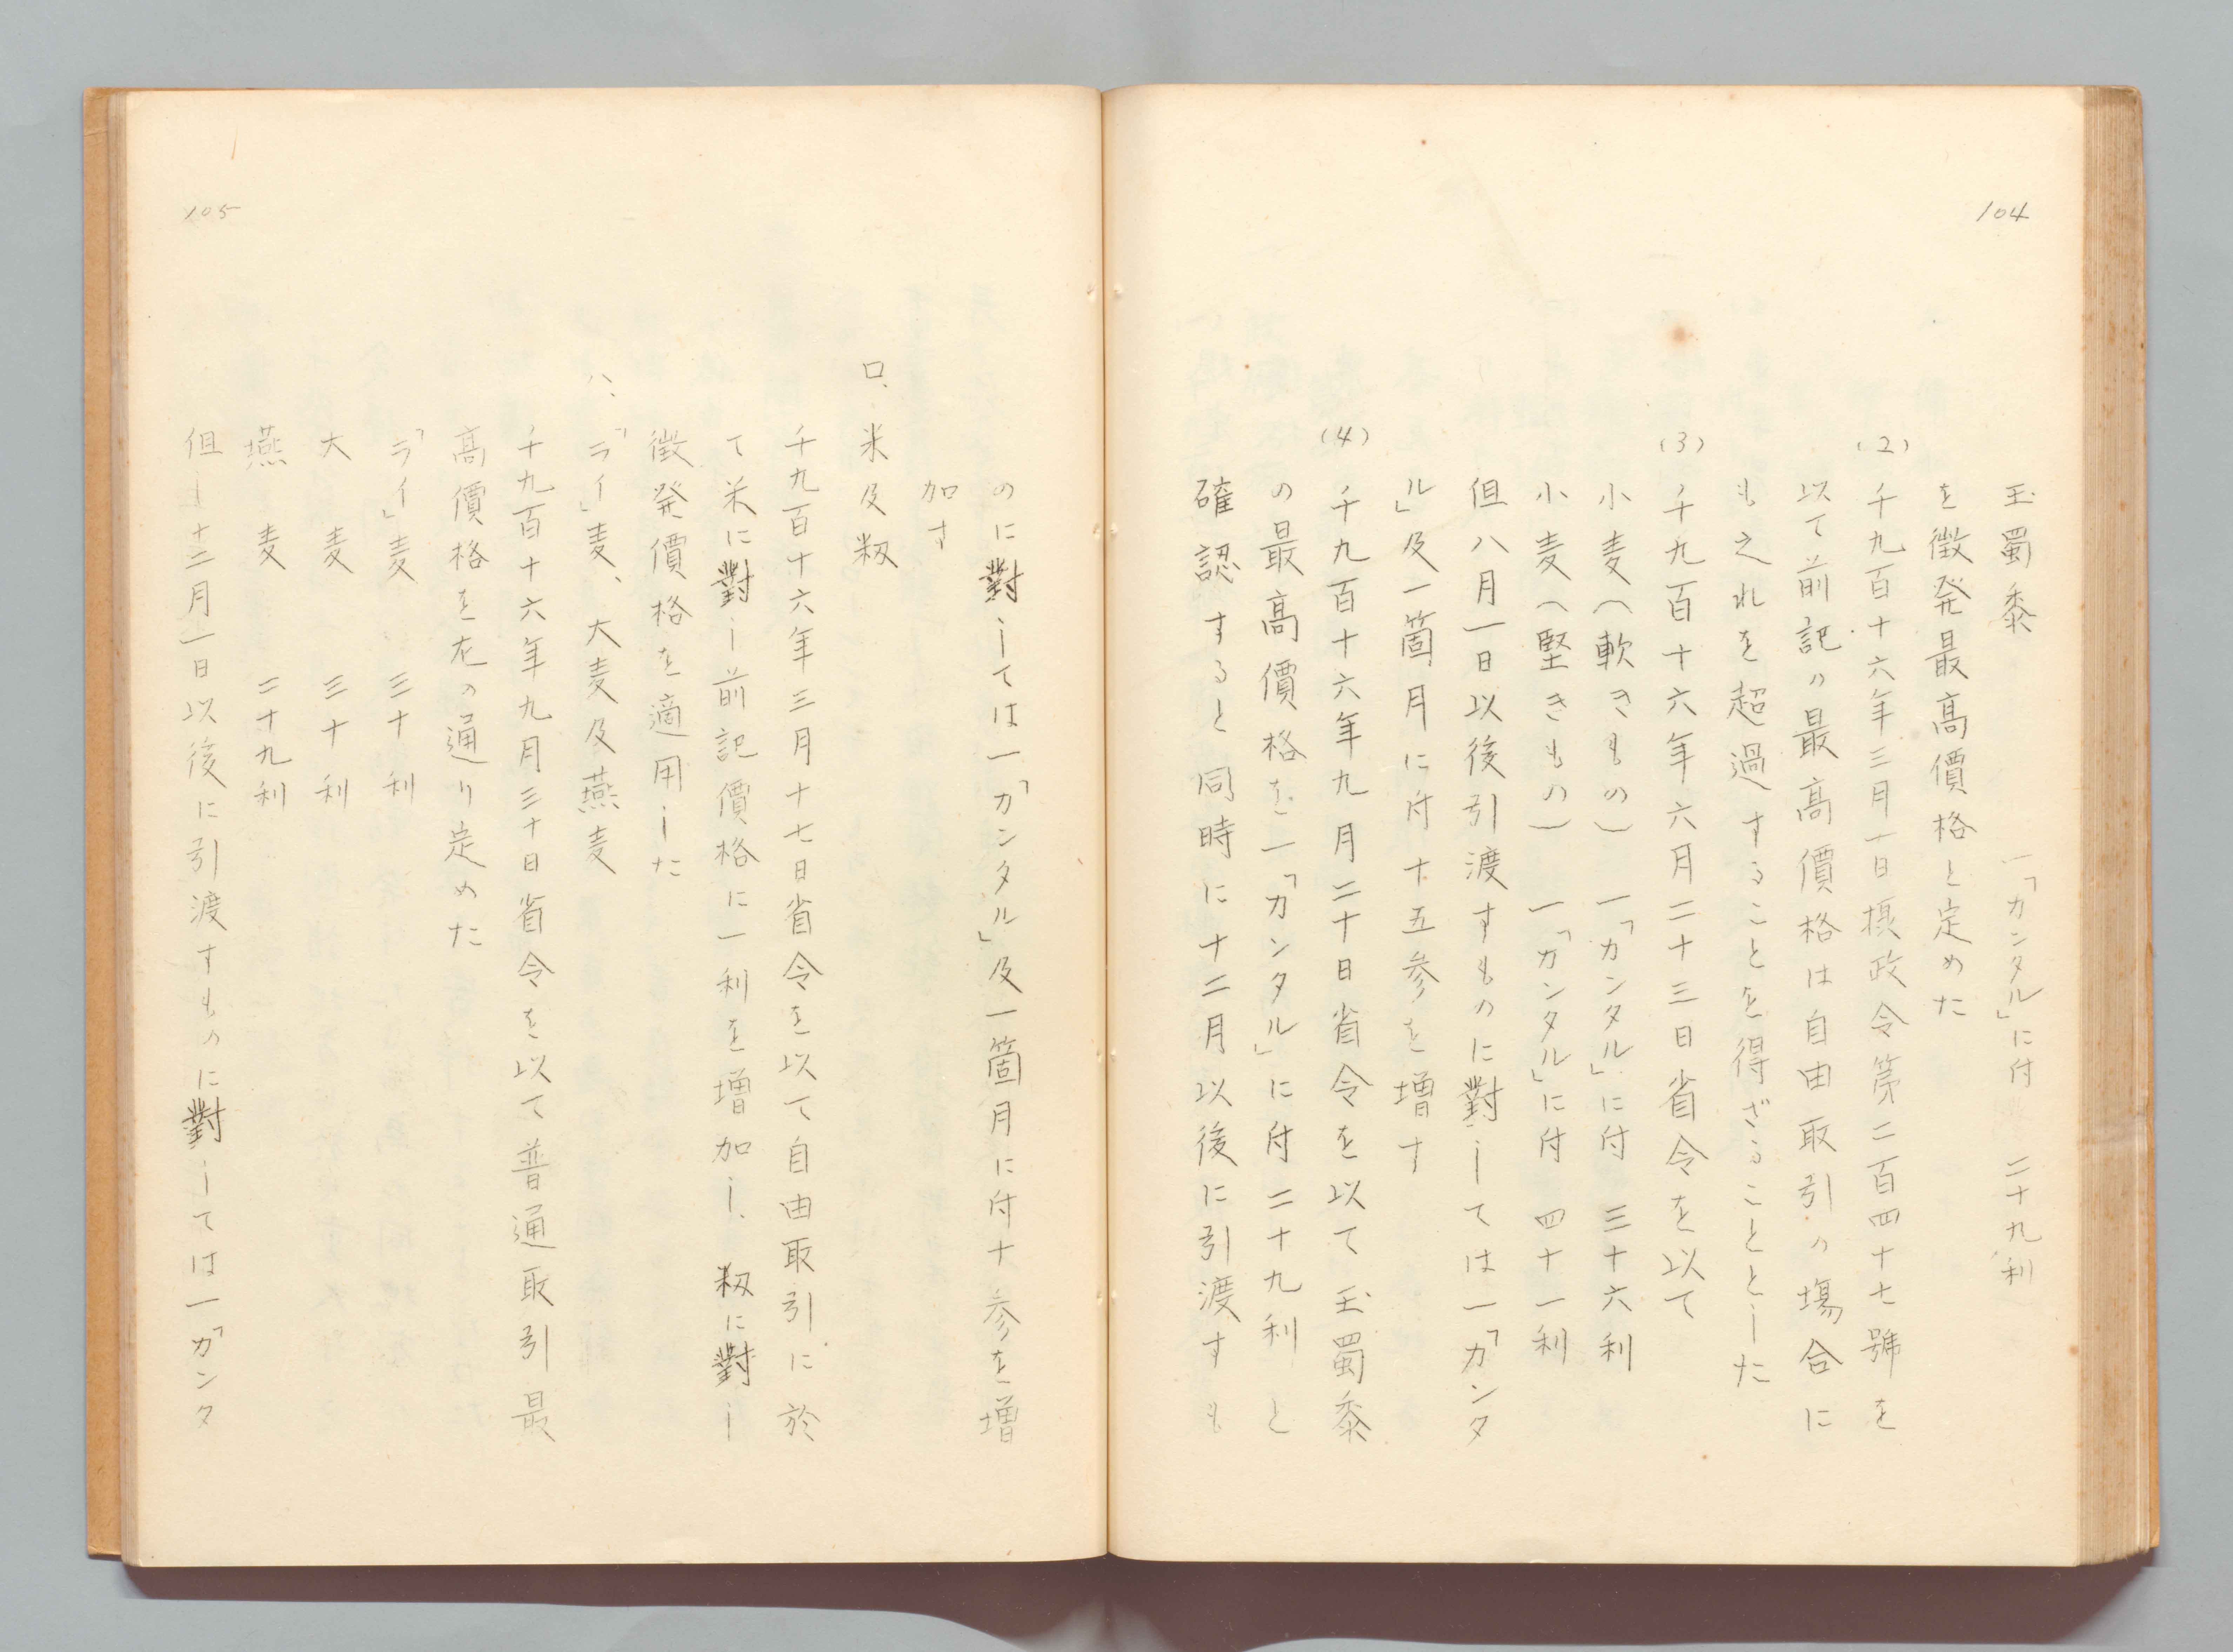 104
玉蜀黍 一「カンタル」に付 二十九利
を徴発最高價格と定めた
(2) 千九百十六年三月十日摂政令第二百四十七號を
以て前記の最高價格は自由取引の場合に
も之れを超過することを得ざることとした
(3) 千九百十六年六月二十三日省令を以て
小麦(軟きもの) 一「カンタル」に付 三十六利
小麦(堅きもの) 一「カンタル」に付 四十一利
但八月一日以後引渡すものに對しては一「カンタ
ル」及一箇月に付十五参を増す
(4) 千九百十六年九月二十日省令を以て玉蜀黍
の最高價格を一「カンタル」に付二十九利と
確認すると同時に十二月以後に引渡すも
105
のに對しては一「カンタル」及一箇月に付十参を増
加す
ロ、米及籾
千九百十六年三月十七日省令を以て自由取引に於
て米に對し前記價格に一利を増加し、籾に對し
徴発價格を適用した
ハ、「ライ」麦、大麦及燕麦
千九百十六年九月三十日省令を以て普通取引最
高價格を左の通り定めた
「ライ」麦 三十利
大麦 三十利
燕麦 二十九利
但し十二月一日以後に引渡すものに對しては一「カンタ